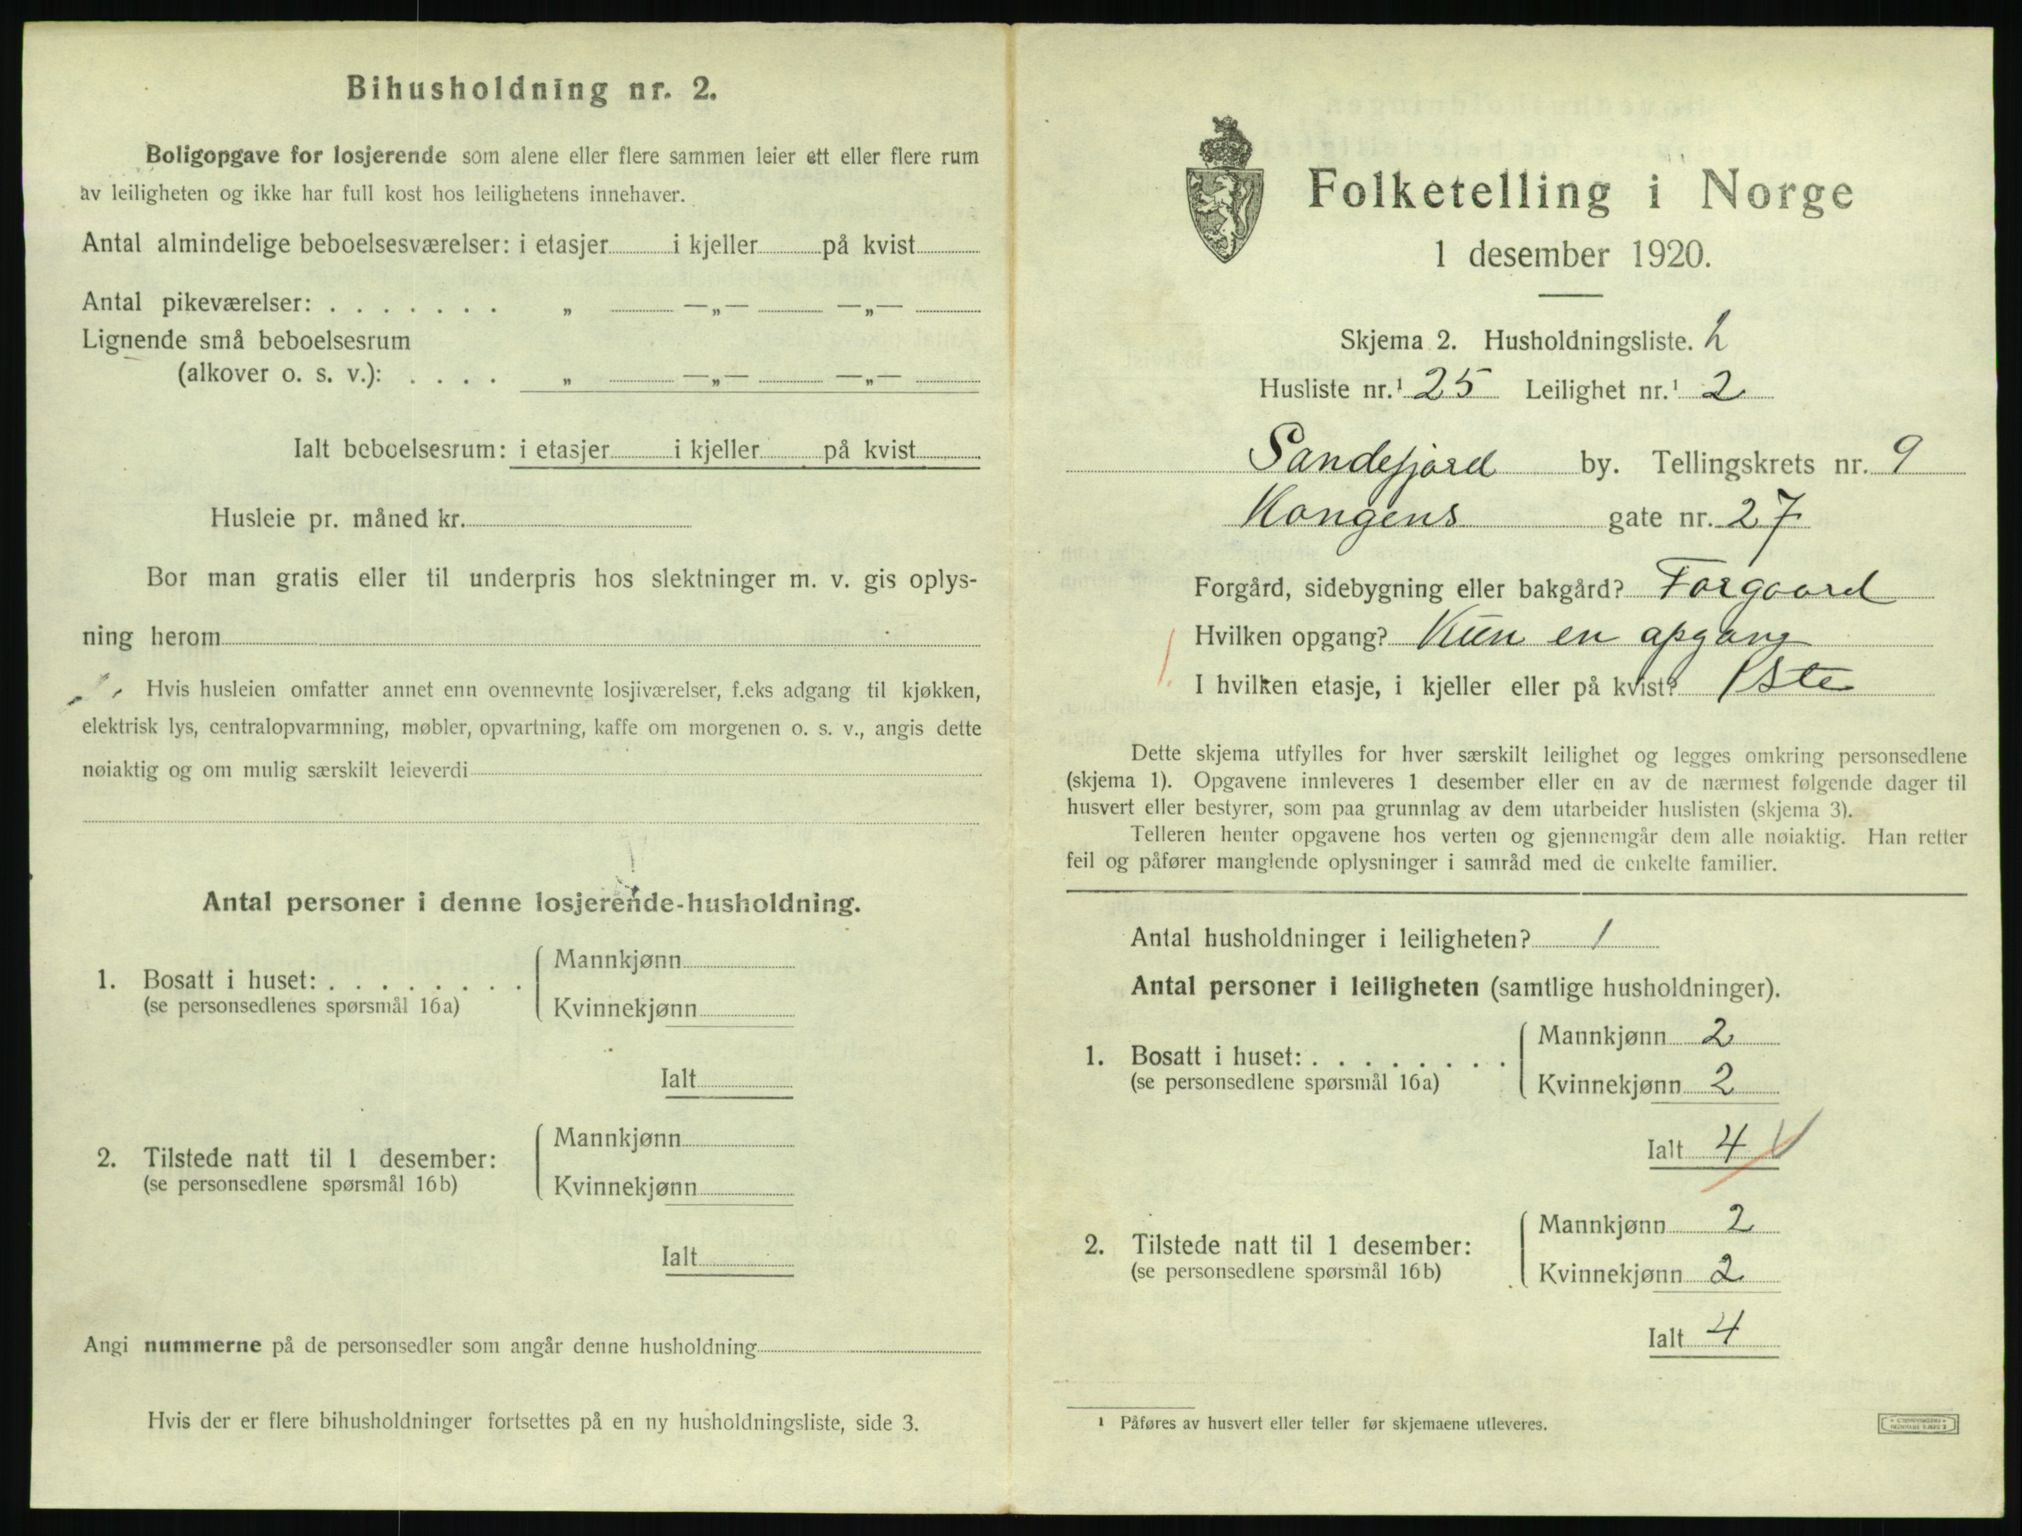 Bihusholdning nr. 2.
Boligopgave for losjerende som alene eller flere sammen leier ett eller flere rum
av leiligheten og ikke har full kost hos leilighetens innehaver.
Antal almindelige beboelsesværelser: i etasjer i kjeller på kvist
Antal pikeværelser: . . . . . . . „ —„— —„—
Lignende små beboelsesrum
(alkover o. s. v.): . . . . „ —„— —„—
Ialt beboelsesrum: i etasjer i kjeller på kvist
Husleie pr. måned kr.
Bor man gratis eller til underpris hos slektninger m. v. gis oplys-
ning herom
Hvis husleien omfatter annet enn ovennevnte losjiværelser, f.eks adgang til kjøkken,
elektrisk lys, centralopvarmning, møbler, opvartning, kaffe om morgenen o. s. v., angis dette
nøiaktig og om mulig særskilt leieverdi
Antal personer i denne losjerende-husholdning.
1. Bosatt i huset: . . . . . . . .
(se personsedlenes spørsmål 16a)
Mannkjønn
Kvinnekjønn
Ialt
2. Tilstede natt til 1 desember:
(se personsedlene spørsmål 16b)
Mannkjønn
Kvinnekjønn
Ialt
Angi nummerne på de personsedler som angår denne husholdning
Hvis der er flere bihusholdninger fortsettes på en ny husholdningsliste, side 3.
Folketelling i Norge
1 desember 1920.
Skjema 2. Husholdningsliste. 2
Husliste nr.¹ 25 Leilighet nr.¹ 2
Sandefjord by. Tellingskrets nr. 9
Kongens gate nr. 27
Forgård, sidebygning eller bakgård? Forgaard
Hvilken opgang? Kun en opgang
I hvilken etasje, i kjeller eller på kvist? 1ste
Dette skjema utfylles for hver særskilt leilighet og legges omkring personsedlene
(skjema 1). Opgavene innleveres 1 desember eller en av de nærmest følgende dager til
husvert eller bestyrer, som paa grunnlag av dem utarbeider huslisten (skjema 3).
Telleren henter opgavene hos verten og gjennemgår dem alle nøiaktig. Han retter
feil og påfører manglende oplysninger i samråd med de enkelte familier.
Antal husholdninger i leiligheten? 1
Antal personer i leiligheten (samtlige husholdninger).
1. Bosatt i huset: . . . . . . . .
(se personsedlene spørsmål 16a)
Mannkjønn 2
Kvinnekjønn 2
Ialt 4
2. Tilstede natt til 1 desember:
(se personsedlene spørsmål 16b)
Mannkjønn 2
Kvinnekjønn 2
Ialt 4
¹ Påføres av husvert eller teller før skjemaene utleveres.